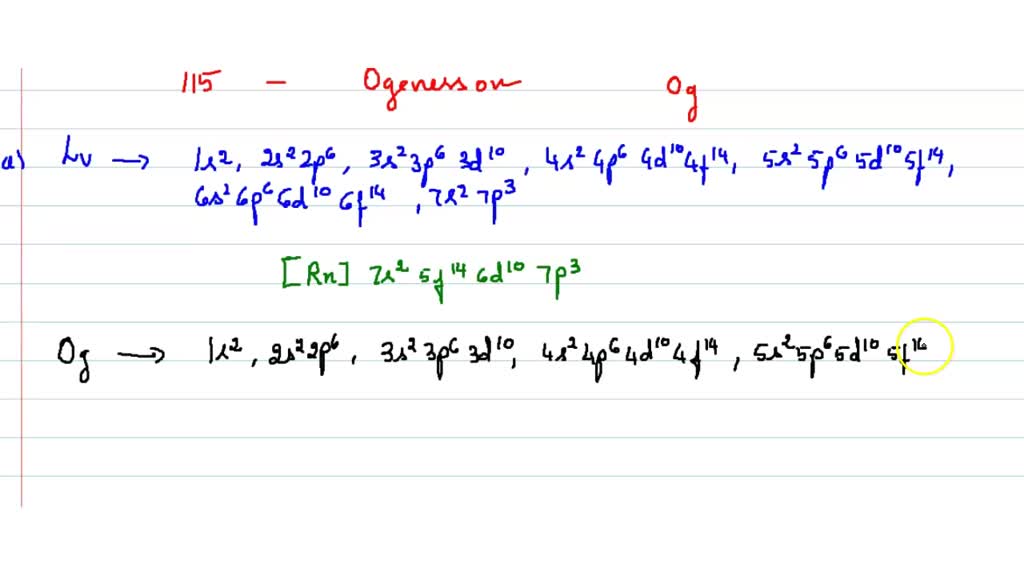 115 – Ogenesson Og
a) Lv → 1s², 2s² 2p⁶, 3s² 3p⁶ 3d¹⁰, 4s² 4p⁶ 4d¹⁰ 4f¹⁴, 5s² 5p⁶ 5d¹⁰ 5f¹⁴,
6s² 6p⁶ 6d¹⁰ 6f¹⁴, 7s² 7p³
[Rn] 7s² 5f¹⁴ 6d¹⁰ 7p³
Og → 1s², 2s² 2p⁶, 3s² 3p⁶ 3d¹⁰, 4s² 4p⁶ 4d¹⁰ 4f¹⁴, 5s² 5p⁶ 5d¹⁰ 5f¹⁴